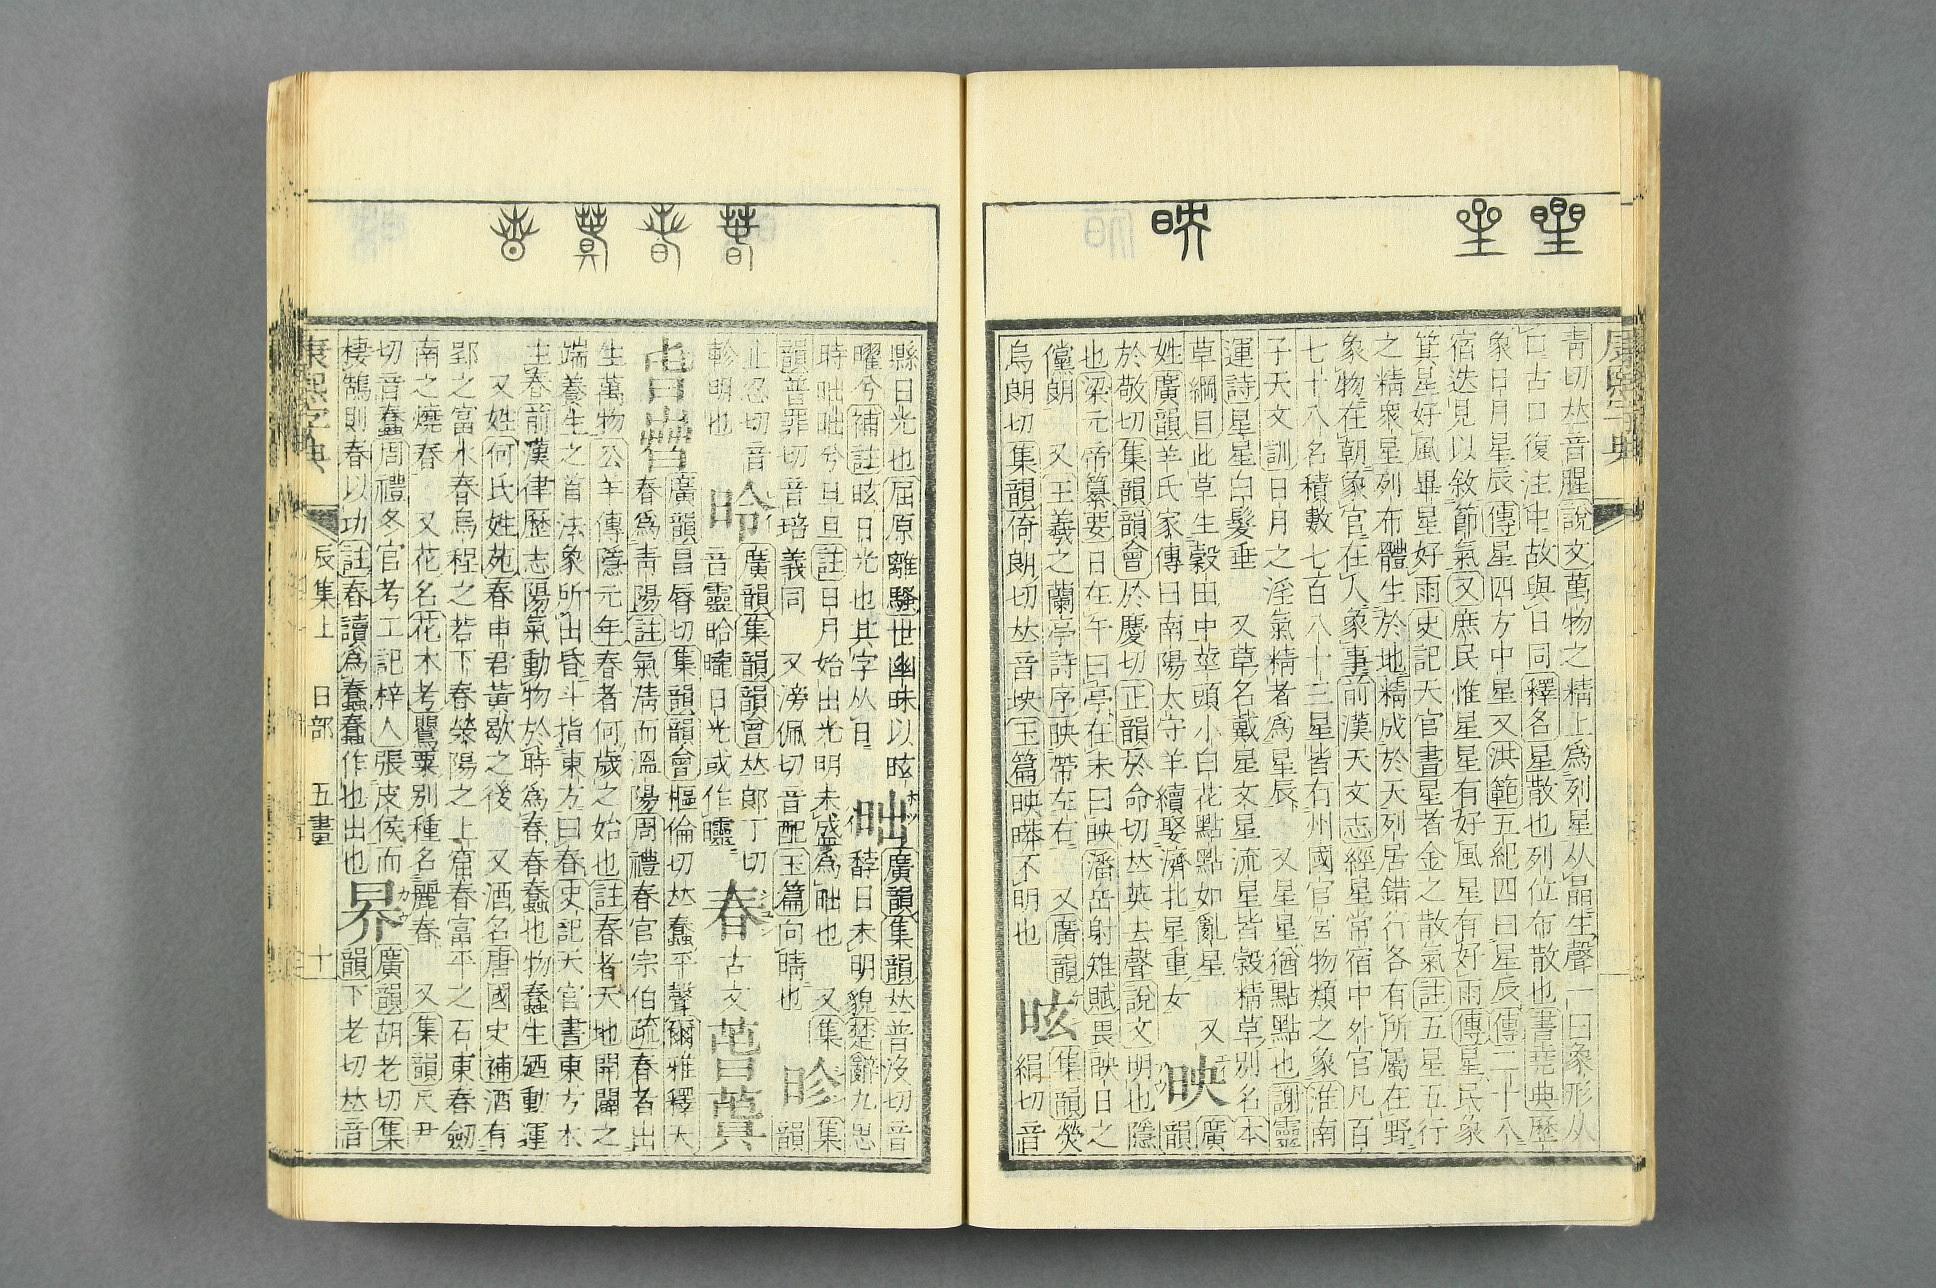 青切𠀤音腥說文萬物之精上爲列星从晶生聲一曰象形从
口古口復注中故與日同釋名星散也列位布散也書堯典歷
象日月星辰傳星四方中星又洪範五紀四曰星辰傳二十八
宿迭見以敘節氣又庶民惟星星有好風星有好雨傳星民象
箕星好風畢星好雨史記天官書星者金之散氣註五星五行
之精衆星列布體生於地精成於天列居錯行各有所屬在野
象物在朝象官在人象事前漢天文志經星常宿中外官凡百
七十八名積數七百八十三星皆有州國官宮物類之象淮南
子天文訓日月之淫氣精者爲星辰 又星星猶點點也謝靈
運詩星星白髮垂 又草名戴星文星流星皆穀精草別名本
草綱目此草生穀田中莖頭小白花點點如亂星 又
姓廣韻羊氏家傳曰南陽太守羊續娶濟北星重女
映 廣韻
於敬切集韻韻會於慶切正韻於命切𠀤英去聲說文明也隱
也梁元帝纂要日在午曰亭在未曰映潘岳射雉賦畏映日之
儻朗 又王羲之蘭亭詩序映帶左右 又廣韻
烏朗切集韻倚朗切𠀤音坱玉篇映㬒不明也
昡 集韻熒
絹切音
縣日光也屈原離騷世幽昧以昡
曜兮補註昡日光也其字从日
昢 廣韻集韻𠀤普沒切音
䪿日未明貌楚辭九思
時昢昢兮旦旦註日月始出光明未盛爲昢也 又集
韻普罪切音琣義同 又滂佩切音配玉篇向晴也
昣 集韻
止忍切音
軫明也
昤 廣韻集韻韻會𠀤郎丁切
音靈昤曨日光或作㬡
春 古文
廣韻昌脣切集韻韻會樞倫切𠀤蠢平聲爾雅釋天
春爲靑陽註氣淸而溫陽周禮春官宗伯疏春者出
生萬物公羊傳隱元年春者何歲之始也註春者天地開闢之
端養生之首法象所出昏斗指東方曰春史記天官書東方木
主春前漢律歷志陽氣動物於時爲春春蠢也物蠢生廼動運
又姓何氏姓苑春申君黃歇之後 又酒名唐國史補酒有
郢之富水春烏程之若下春滎陽之上窟春富平之石東春劒
南之燒春 又花名花木考罌粟別種名麗春 又集韻尺尹
切音蠢周禮冬官考工記梓人張皮侯而
棲鵠則春以功註春讀爲蠢蠢作也出也
昦 廣韻胡老切集
韻下老切𠀤音
康熙字典 辰集上 日部 五畫 十